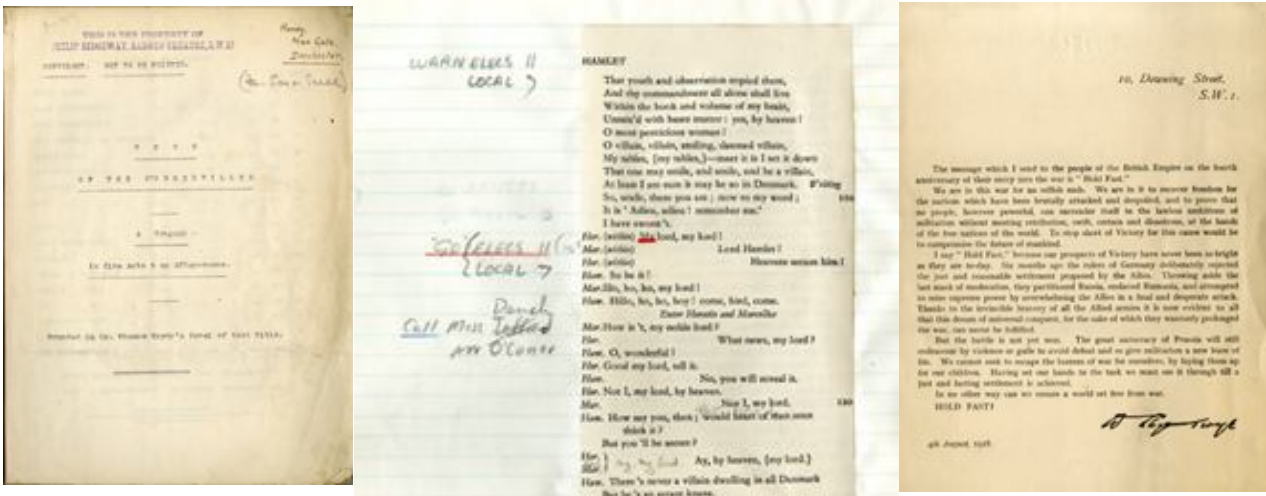 THIS IS THE PROPERTY OF
PHILIP RIDGEWAY, BARNES THEATRE, S.W.13
COPYRIGHT. NOT TO BE PRINTED.
Max Gate,
Dorchester
T E S S
OF THE D'URBERVILLES
A Tragedy
In five Acts & an Afterscene.
Founded on Mr. Thomas Hardy's Novel of that Title.
WARN ELECS 11
LOCAL 7
GO ELECS 11
LOCAL 7
Call Miss
Mr O'Connor
HAMLET
That youth and observation copied there,
And thy commandment all alone shall live
Within the book and volume of my brain,
Unmix'd with baser matter: yes, by heaven!
O most pernicious woman!
O villain, villain, smiling, damned villain,
My tables, [my tables,]—meet it is I set it down
That one may smile, and smile, and be a villain,
At least I am sure it may be so in Denmark. Writing
So, uncle, there you are; now to my word; 110
It is 'Adieu, adieu! remember me.'
I have sworn't.
Hor. (within) My lord, my lord!
Mar. (within) Lord Hamlet!
Hor. (within) Heavens secure him!
Ham. So be it!
Mar. Illo, ho, ho, my lord!
Ham. Hillo, ho, ho, boy! come, bird, come.
Enter Horatio and Marcellus
Mar. How is't, my noble lord?
Hor. What news, my lord?
Ham. O, wonderful!
Hor. Good my lord, tell it.
Ham. No, you will reveal it.
Hor. Not I, my lord, by heaven.
Mar. Nor I, my lord. 120
Ham. How say you, then; would heart of man once
think it?
But you'll be secret?
Hor.
Mar. } Ay, by heaven, [my lord.]
Ham. There's never a villain dwelling in all Denmark
But he's an arrant knave.
10, Downing Street,
S.W.1.
The message which I send to the people of the British Empire on the fourth
anniversary of their entry into the war is "Hold Fast."
We are in this war for no selfish ends. We are in it to recover freedom for
the nations which have been brutally attacked and despoiled, and to prove that
no people, however powerful, can surrender itself to the lawless ambitions of
militarism without meeting retribution, swift, certain and disastrous, at the hands
of the free nations of the world. To stop short of Victory for this cause would be
to compromise the future of mankind.
I say "Hold Fast," because our prospects of Victory have never been so bright
as they are to-day. Six months ago the rulers of Germany deliberately rejected
the just and reasonable settlement proposed by the Allies. Throwing aside the
last mask of moderation, they partitioned Russia, enslaved Rumania, and attempted
to seize supreme power by overwhelming the Allies in a final and desperate attack.
Thanks to the invincible bravery of all the Allied armies it is now evident to all
that this dream of universal conquest, for the sake of which they wantonly prolonged
the war, can never be fulfilled.
But the battle is not yet won. The great autocracy of Prussia will still
endeavour by violence or guile to avoid defeat and so give militarism a new lease of
life. We cannot seek to escape the horrors of war for ourselves, by laying them up
for our children. Having set our hands to the task we must see it through till a
just and lasting settlement is achieved.
In no other way can we ensure a world set free from war.
HOLD FAST!
4th August, 1918